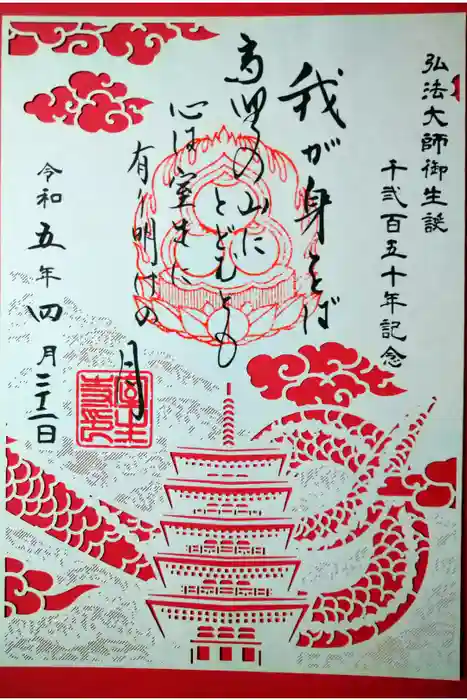 弘法大師御生誕
千弐百五十年記念
我が身をば
高野の山に
とどむとも
心は室生に
有り明けの
月
令和五年四月二十二日